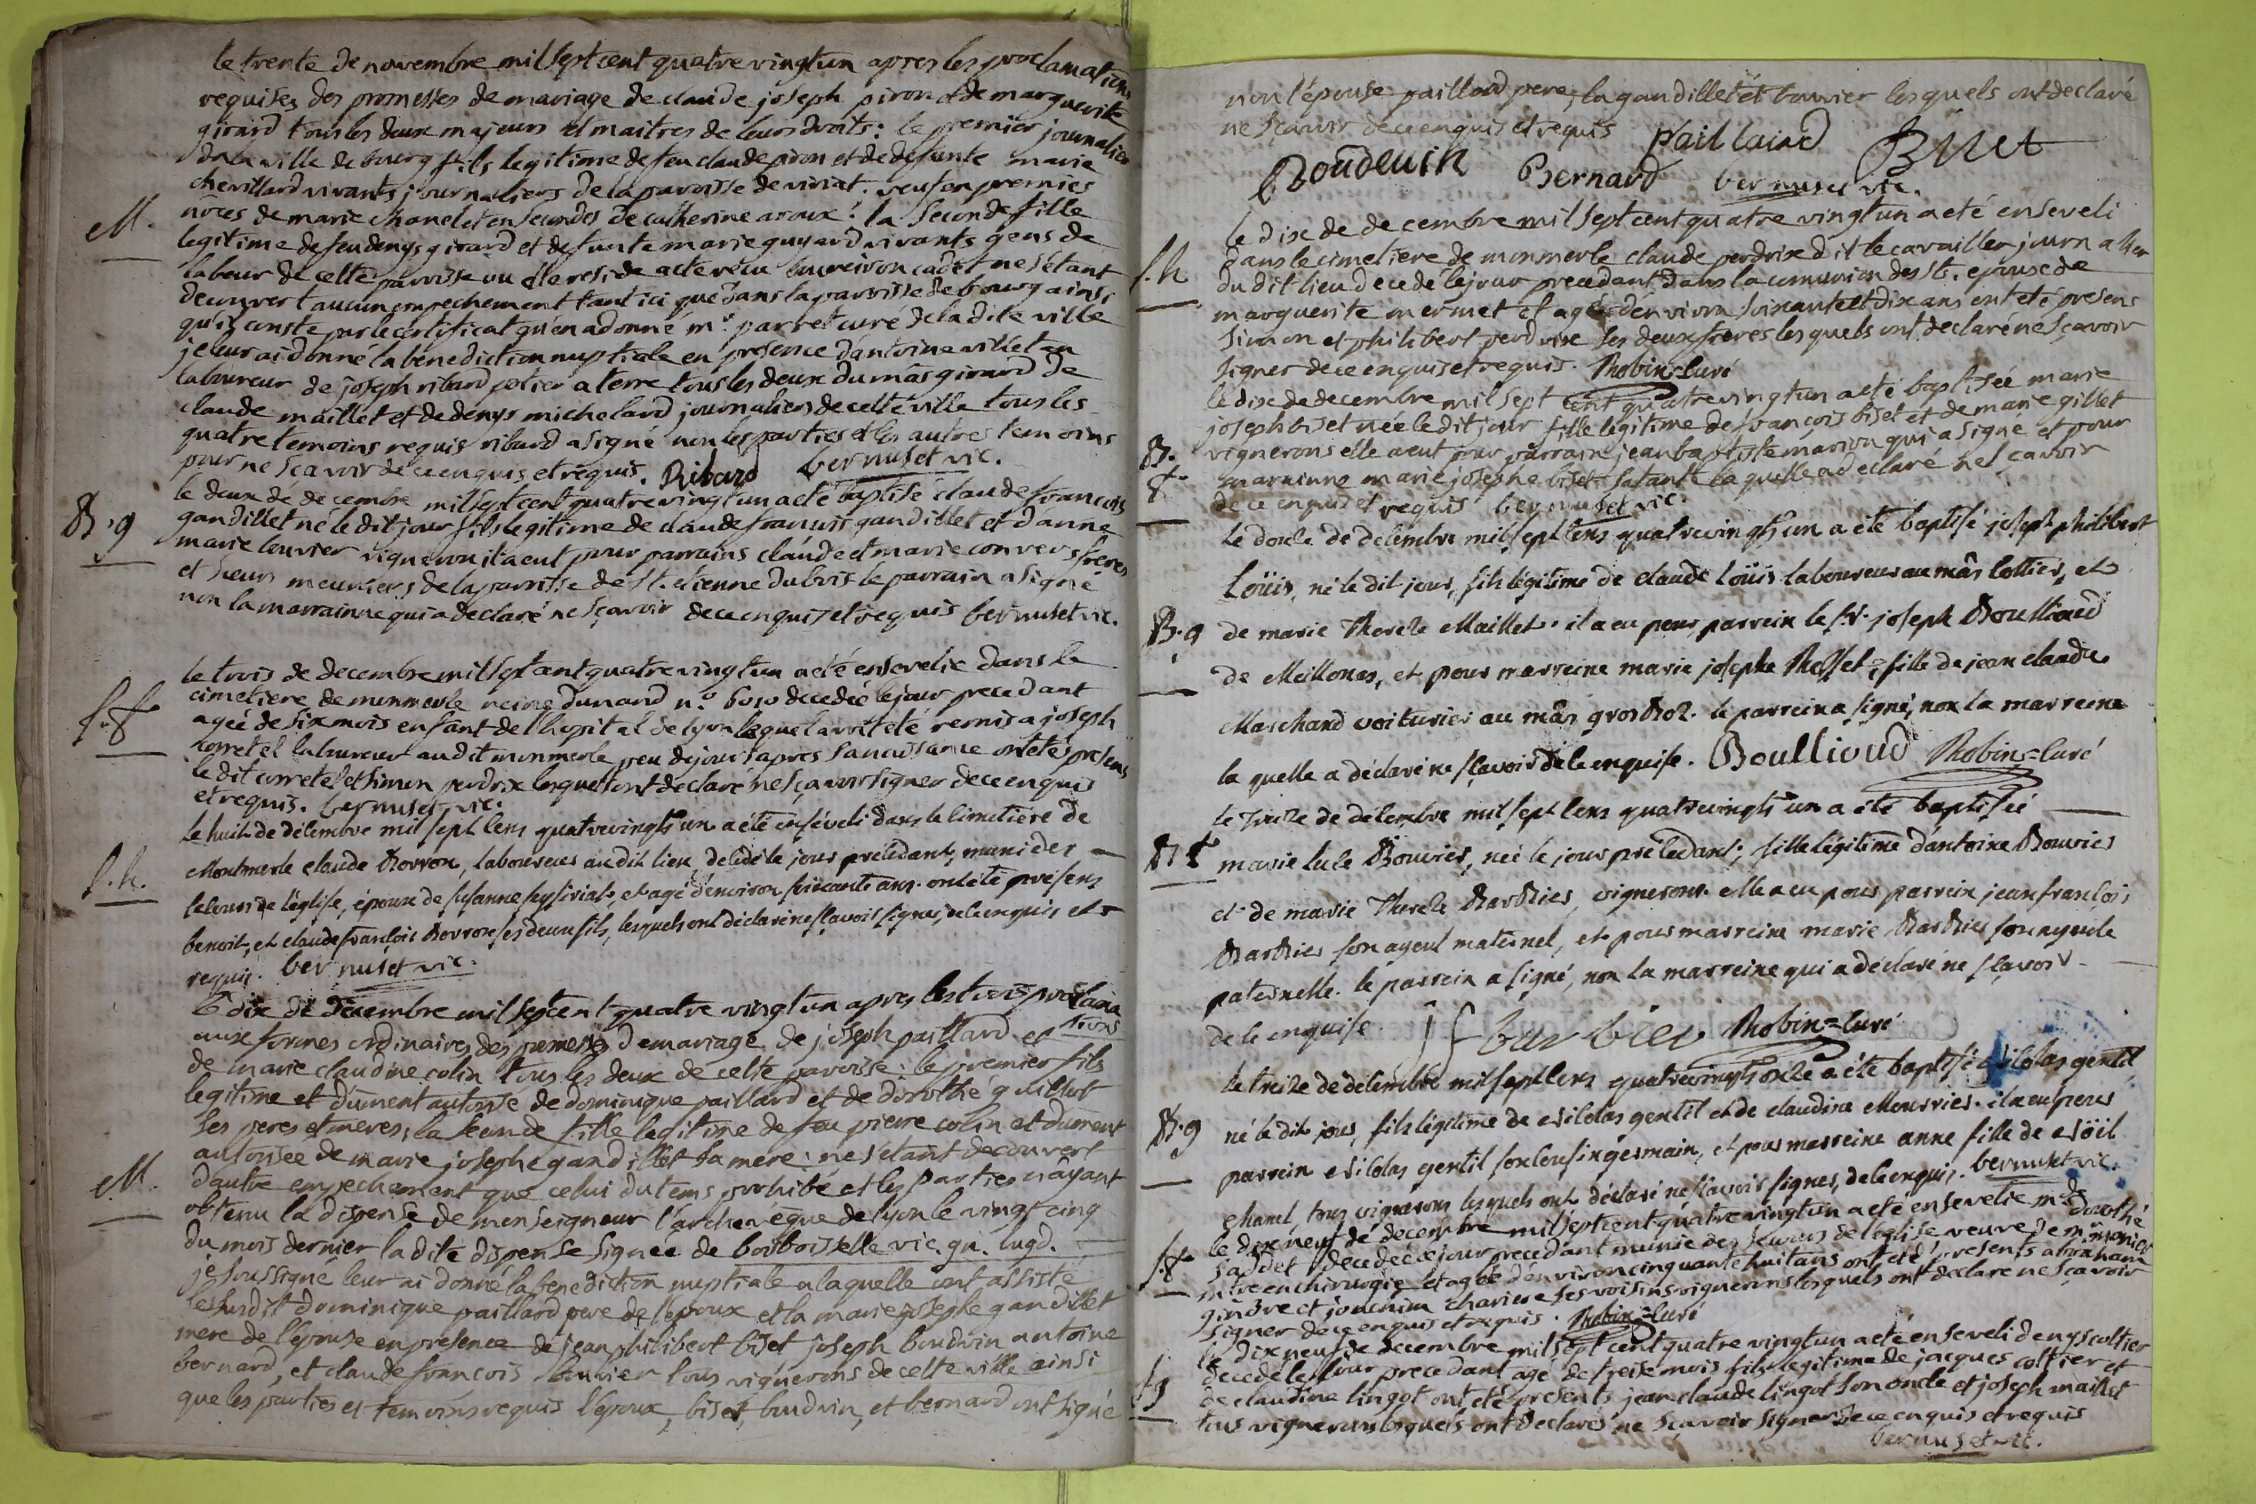 le trente de novembre mil sept cent quatre vingt un apres les proclamations
requises des promesses de mariage de claude joseph piron et de marguerite
girard tous les deux majeurs et maitres de leurs droits: le premier journalier
de la ville de bourg fils legitime de feu claude piron et de defunte marie
chevillard vivants journaliers de la paroisse de viriat. veuf en premieres
M. nôces de marie chanel et en secondes de catherine aroux: la seconde fille
legitime de feu denys girard et defunte marie guyard vivants gens de
labeur de cette paroisse ou elle reside acte reçu cadet, ne s'étant
decouvert aucun empechement tant ici que dans la paroisse de bourg ainsi
qu'il conste par le certificat qu'en a donné mr. parret curé de la dite ville
je leur ai donné la bénédiction nuptiale en presence d'antoine villet
laboureur de joseph ribard potier a terre tous les deux du mâs girard de
claude maillet et de denys michelard journaliers de cette ville tous les
quatre temoins requis ribard a signé non les parties et les autres temoins
pour ne sçavoir de ce enquis et requis. Ribard bernuset vic.
B. g le deux de decembre mil sept cent quatre vingt un a eté baptisé claude francois
gandillet né le dit jour fils legitime de claude francois gandillet et d'anne
marie louvier vigneron il a eut pour parrains claude et marie convers freres
et soeurs meuniers de la parroisse de st. etienne du bois le parrain a signé
non la marrainne qui a declaré ne sçavoir de ce enquis et requis bernuset vic.
le trois de decembre mil sept cent quatre vingt un a eté ensevelie dans le
cimetiere de monmerle reine dunard n°. 6020 decedée le jour precedant
S. f agée de six mois enfant de l'hopital de lyon lequel avoit eté remis a joseph
corretel laboureur au dit monmerle peu de jours apres sa naissance ont étés presens
le dit corretel et simon perdrix lesquels ont declaré ne sçavoir signer de ce enquis
et requis. bernuset vic.
le huit de décembre mil sept cens quatrevingts un a été enséveli dans le cimetière de
S. h. Montmerle claude Rovron, laboureur au dit lieu, décédé le jour précédant, muni des
secours de l'église, époux de susanne et agé d'environ soixante ans. ont été présens
benoit, et claude françois Rovron ses deux fils, lesquels ont déclaré ne sçavoir signer, de ce enquis et
requis. bernuset vic.
le dix de decembre mil sept cent quatre vingt un apres les trois proclama
tions
aux formes ordinaires des promesses de mariage de joseph paillard et
de marie claudine colin tous les deux de cette paroisse: le premier fils
legitime et dument autorisé de dominique paillard et de dorothé guillot
ses peres et meres; la seconde fille legitime de feu pierre colin et dument
autorisée de marie josephe gandillet sa mere: ne s'étant decouvert
M. d'autre empechement que celui du tems prohibé et les parties n'ayant
obtenu la dispense de monseigneur l'archevêque de lyon le vingt cinq
du mois dernier la dite dispense signée de boisboisselle vic. gn. lugd.
je soussigné leur ai donné la bénédiction nuptiale a laquelle ont assisté
le susdit dominique paillard pere de l'epoux et la marie josephe gandillet
mere de l'épouse en presence de jean philibert biset joseph boudoin antoine
bernard, et claude francois bouvier tous vignerons de cette ville ainsi
que les parties et temoins requis l'époux, biset, boudoin, et bernard ont signé
non l'épouse paillard pere, la gandillet et bouvier lesquels ont declaré
ne sçavoir de ce enquis et requis Paillaird Biset
Boudouin Bernard bernuset vic.
le dix de decembre mil sept cent quatre vingt un a eté enseveli
dans le cimetiere de monmerle claude perdrix dit le cavailler journalier
S. h du dit lieu decedé le jour precedant dans la communion des sts. epoux de
marguerite mermet et agé d'environ soixante et dix ans ont eté presens
simon et philibert perdrix ses deux freres lesquels ont declaré ne sçavoir
signer de ce enquis et requis. Robin = curé
le dix de decembre mil sept cent quatre vingt un a eté baptisée marie
joseph biset née le dit jour fille legitime de françois biset et de marie gillet
B. vignerons elle a eut pour parrain jean baptiste marion qui a signé et pour
f marainne marie josephe biset sa tante laquelle a declaré ne sçavoir
de ce enquis et requis bernuset vic.
le douze de décembre mil sept cens quatrevingts un a été baptisé joseph philibert
Loüis, né le dit jour, fils légitime de claude Loüis laboureur au mâs cottier, et
B. g de marie Thereze Maillet. il a eu pour parrein le sr. joseph Boullioud
de Meillonas, et pour marreine marie josephe fille de jean claude
Marchand voiturier au mâs grosbos. le parrein a signé, non la marreine
la quelle a déclaré ne sçavoir de ce enquise. Boullioud Robin = curé
le treize de décembre mil sept cens quatrevingts un a été baptisée
B f marie luce Bouvier, née le jour précédant, fille légitime d'antoine Bouvier
et de marie Thereze Barbier, vignerons. elle a eu pour parrein jean françois
Barbier son ayeul maternel, et pour marreine marie Barbier son ayeule
paternelle. le parrein a signé, non la marreine qui a déclaré ne sçavoir
de ce enquise. jf barbier Robin = curé
le treize de décembre mil sept cens quatrevingts onze a été baptisé Nicolas gentil
B. g né le dit jour, fils légitime de Nicolas gentil et de claudine Meurier. il a eu pour
parrein Nicolas gentil son cousin germain, et pour marreine anne fille de Noël
chanel, tous vignerons lesquels ont déclaré ne sçavoir signer, de ce enquis. bernuset vic.
le dix neuf de decembre mil sept cent quatre vingt un a eté ensevelie mde dorothé
S. f saddet decedée le jour precedant munie des secours de l'eglise veuve de mr
mtre en chirurgie et agée d'environ cinquante huit ans ont eté presents abraham
gindre et joachim chariere ses voisins vignerons lesquels ont declaré ne sçavoir
signer de ce enquis et requis. Robin = curé
le dix neuf de decembre mil sept cent quatre vingt un a eté enseveli denys cottier
S g decedé le jour precedant agé de treise mois fils legitime de jacques cottier et
de claudine lingot ont eté presents jean claude lingot son oncle et joseph maillet
tous vignerons lesquels ont declarés ne sçavoir signer de ce enquis et requis
bernuset vic.